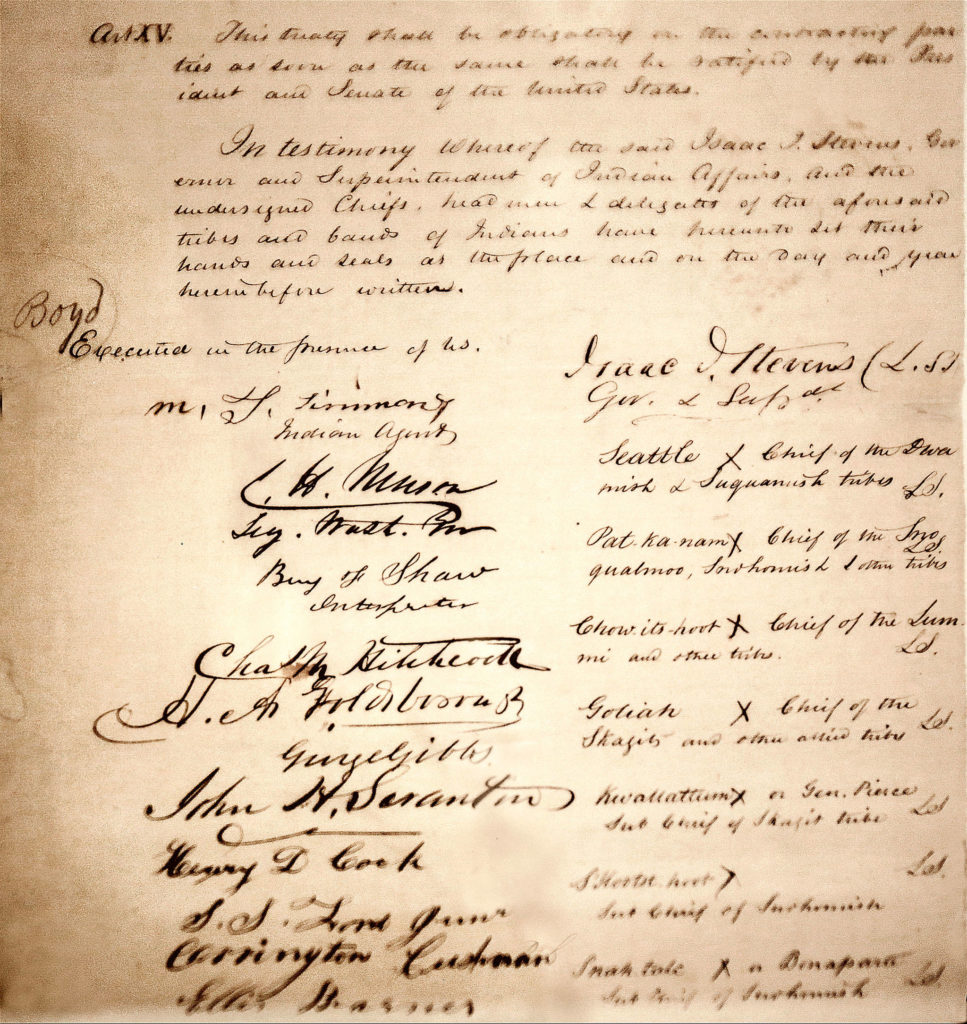 Art XV. This treaty shall be obligatory on the contracting par
ties as soon as the same shall be ratified by the Pres
ident and Senate of the United States.
In testimony Whereof the said Isaac I. Stevens, Gov
ernor and Superintendent of Indian Affairs, and the
undersigned Chiefs, headmen & delegates of the aforesaid
tribes and bands of Indians have hereunto set their
hands and seals at the place and on the day and year
herein before written.
Boyd
Executed in the presence of us.
M. T. Simmons
Indian Agent
C. H. Mason
Secy. Wash. Ter
Benj F Shaw
Interpreter
Chas M Hitchcock
H. A Goldsborough
George Gibbs
John H. Scranton
Henry D Cock
S. S. Ford Junr
Orrington Cushman
Ellis Barnes
Isaac I. Stevens (L.S)
Gov. & Supdt
Seattle X Chief of the Dwa
mish & Suquamish tribes L.S.
Pat-ka-nam X Chief of the Sno
qualmoo, Snohomish & other tribes L.S.
Chow-its-hoot X Chief of the Lum
mi and other tribes. L.S.
Goliah X Chief of the
Skagits and other allied tribes L.S.
Kwallattum X or Gen. Pierce
Sub Chief of Skagit tribe L.S
S'Hootst-hoot X L.S.
Sub Chief of Snohomish
Snah-talc X or Bonaparte
Sub Chief of Snohomish L.S.